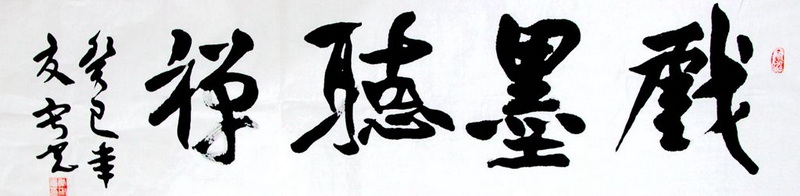 戲墨聽禪
癸巳年
友